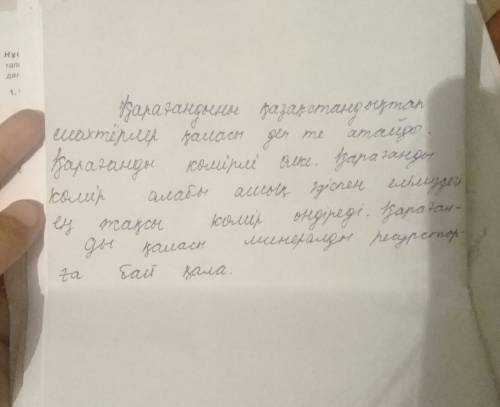 Қарағандыны қазақстандықтар
шахтёрлер қаласы деп те атайды.
Қарағанды көмірлі өлке. Қарағанды
көмір алабы ашық әдіспен еліміздегі
ең жақсы көмір өндіреді. Қараған-
ды қаласы минералды ресурстар-
ға бай қала.